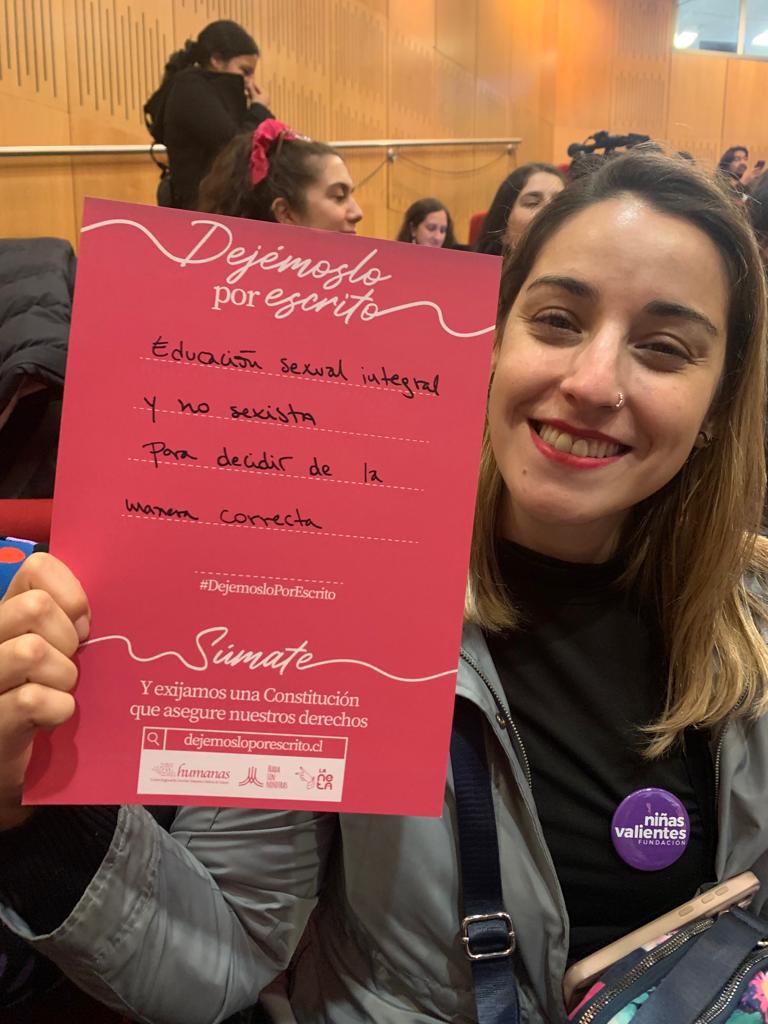 Dejémoslo
por escrito
Educación sexual integral
y no sexista
Para decidir de la
manera correcta
#DejemosloPorEscrito
Súmate
Y exijamos una Constitución
que asegure nuestros derechos
dejemosloporescrito.cl
humanas
NADA
SIN
NOSOTRAS
LA
neta
niñas
valientes
FUNDACIÓN